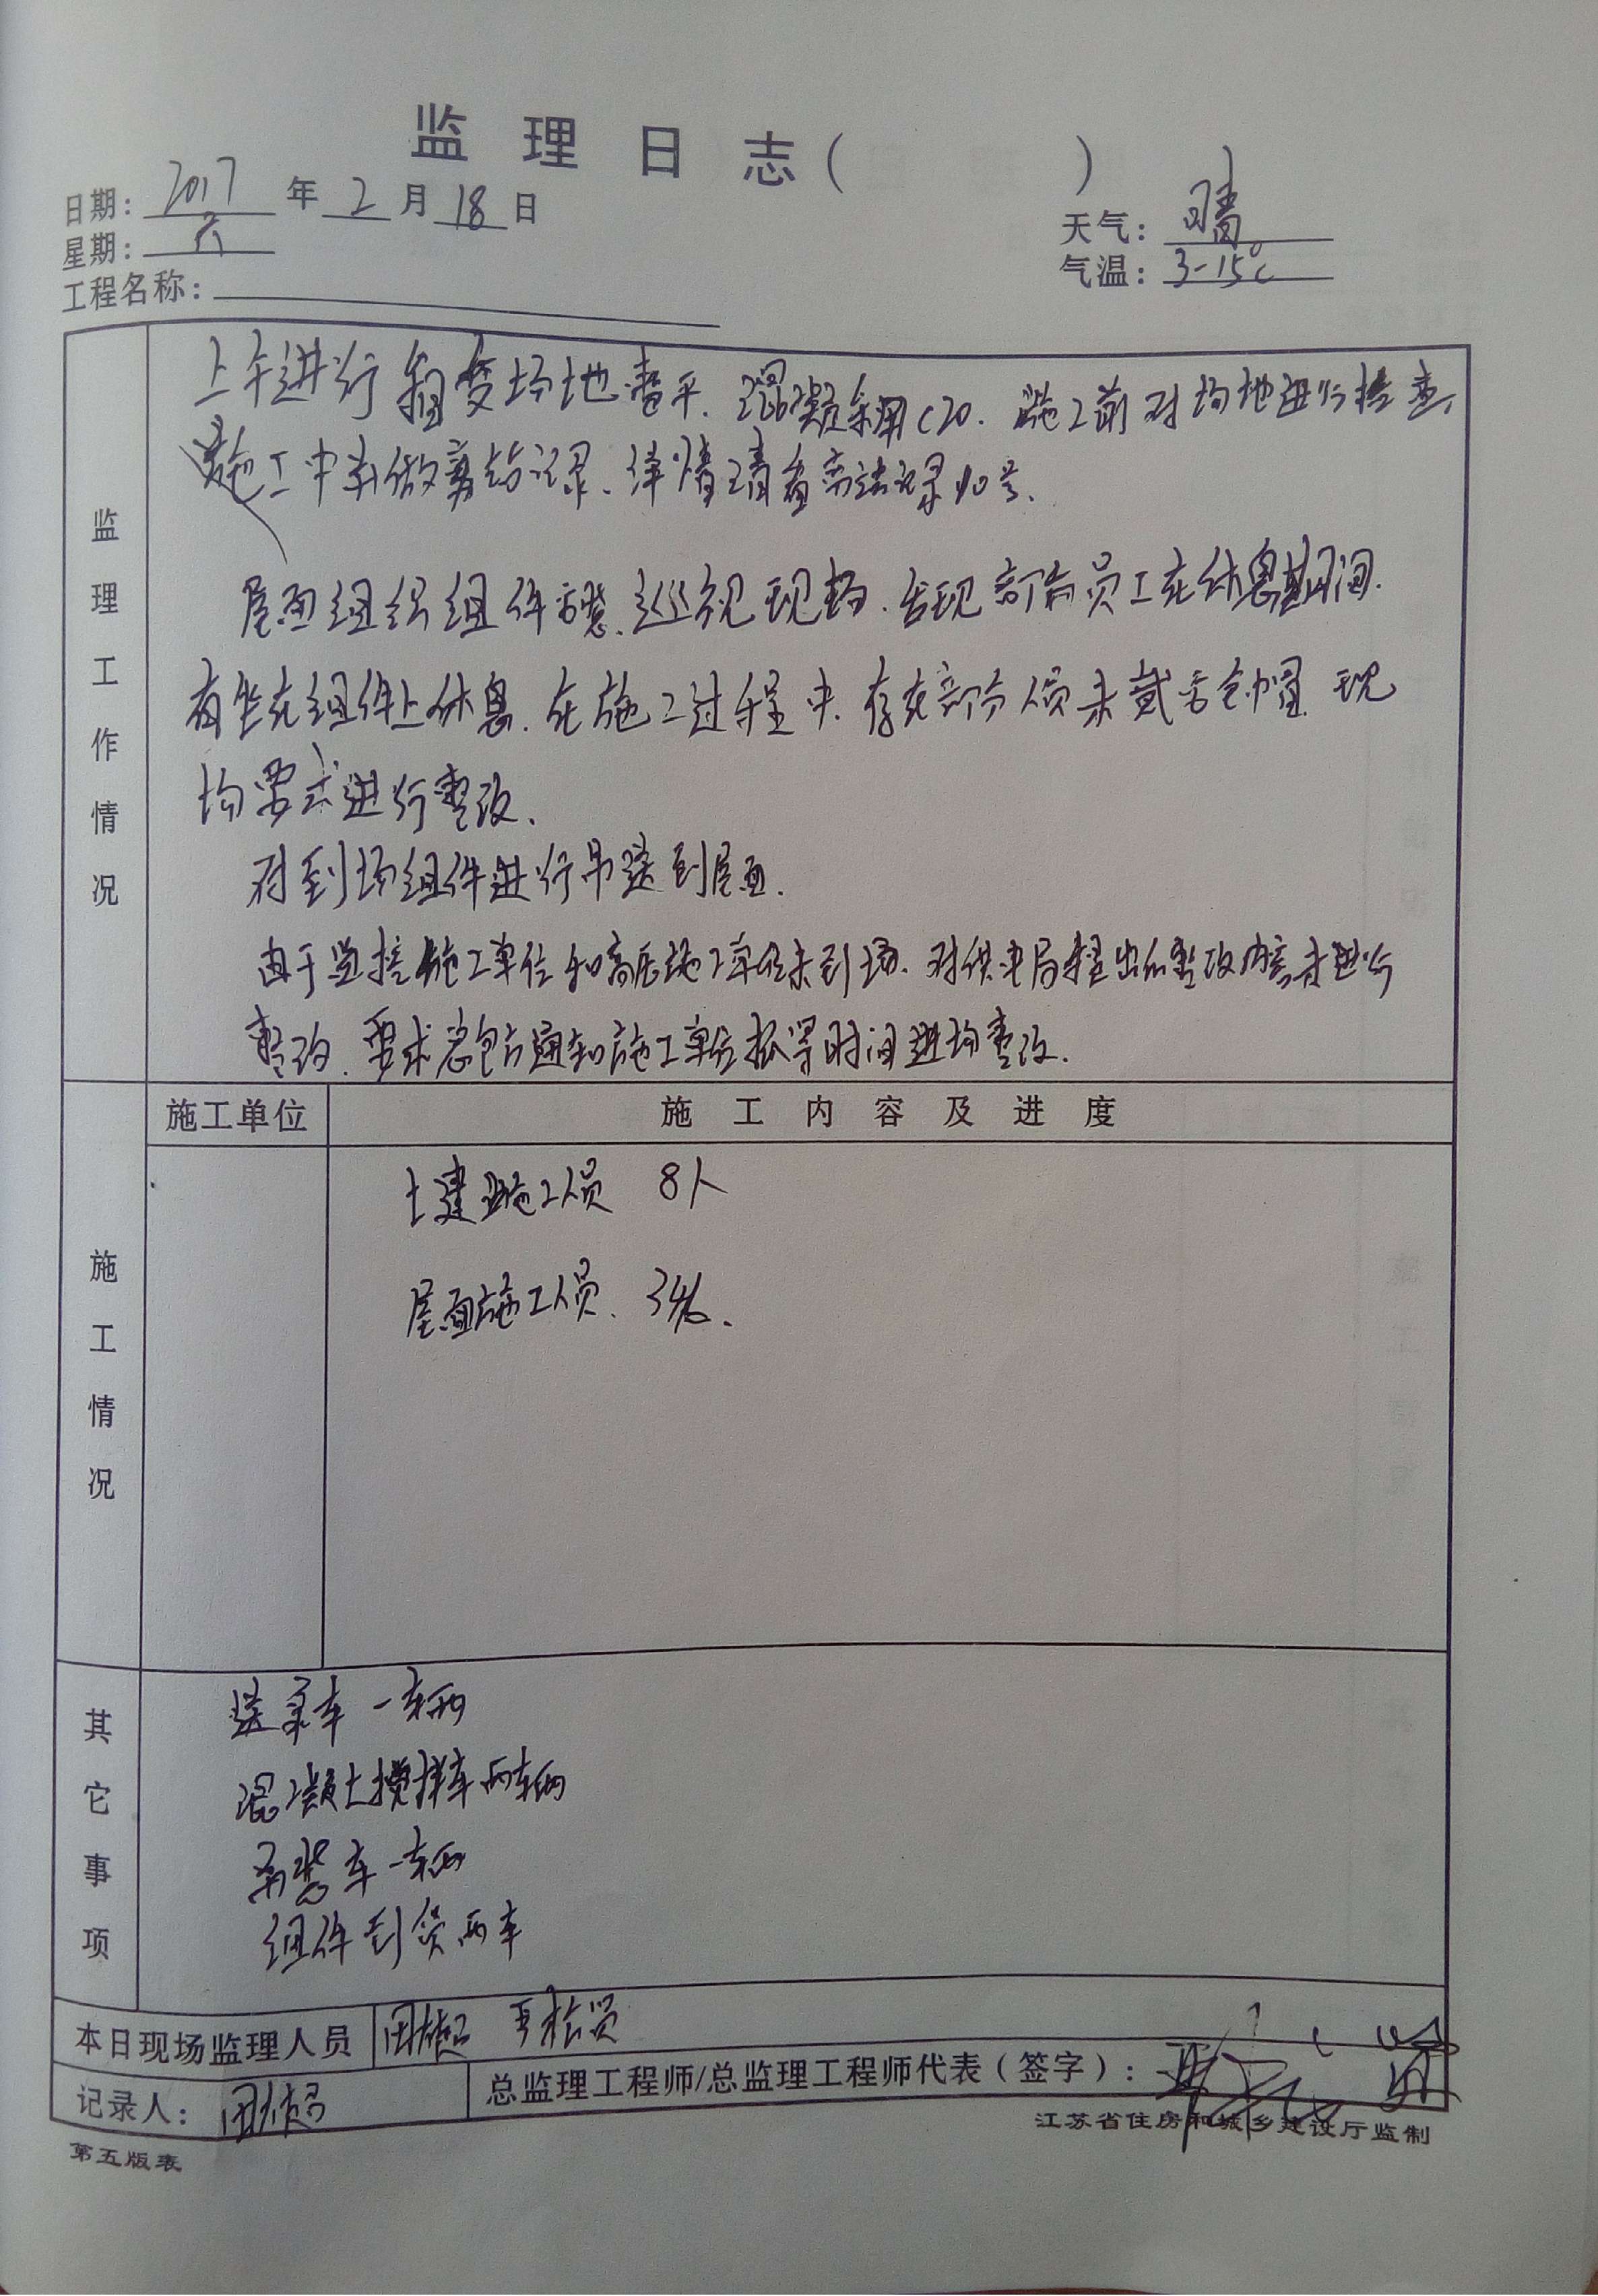 监理日志（ ）
日期：2017年2月18日
星期：六
天气：晴
气温：3-15℃
工程名称：
监理工作情况
上午进行箱变场地整平、混凝采用C20、施工前对场地进行检查、
施工中并做旁站记录、详情请查旁站记录10号、
屋面组织组件安装、巡视现场、发现部份员工在休息期间、
有坐在组件上休息、在施工过程中、存在部分人员未戴安全帽、现
场要求进行整改、
对到场组件进行吊送到屋面、
由于监控施工单位和高压施工单位未到场、对供电局提出的整改内容未进行
整改、要求总包方通知施工单位抓紧时间进场整改、
施工单位 施工内容及进度
施工情况
土建施工人员 8人
屋面施工人员、
其它事项
车一车辆
混凝土搅拌车两车辆
吊装车一车辆
组件到货两车
本日现场监理人员
记录人： 总监理工程师/总监理工程师代表（签字）：
江苏省住房和城乡建设厅监制
第五版表